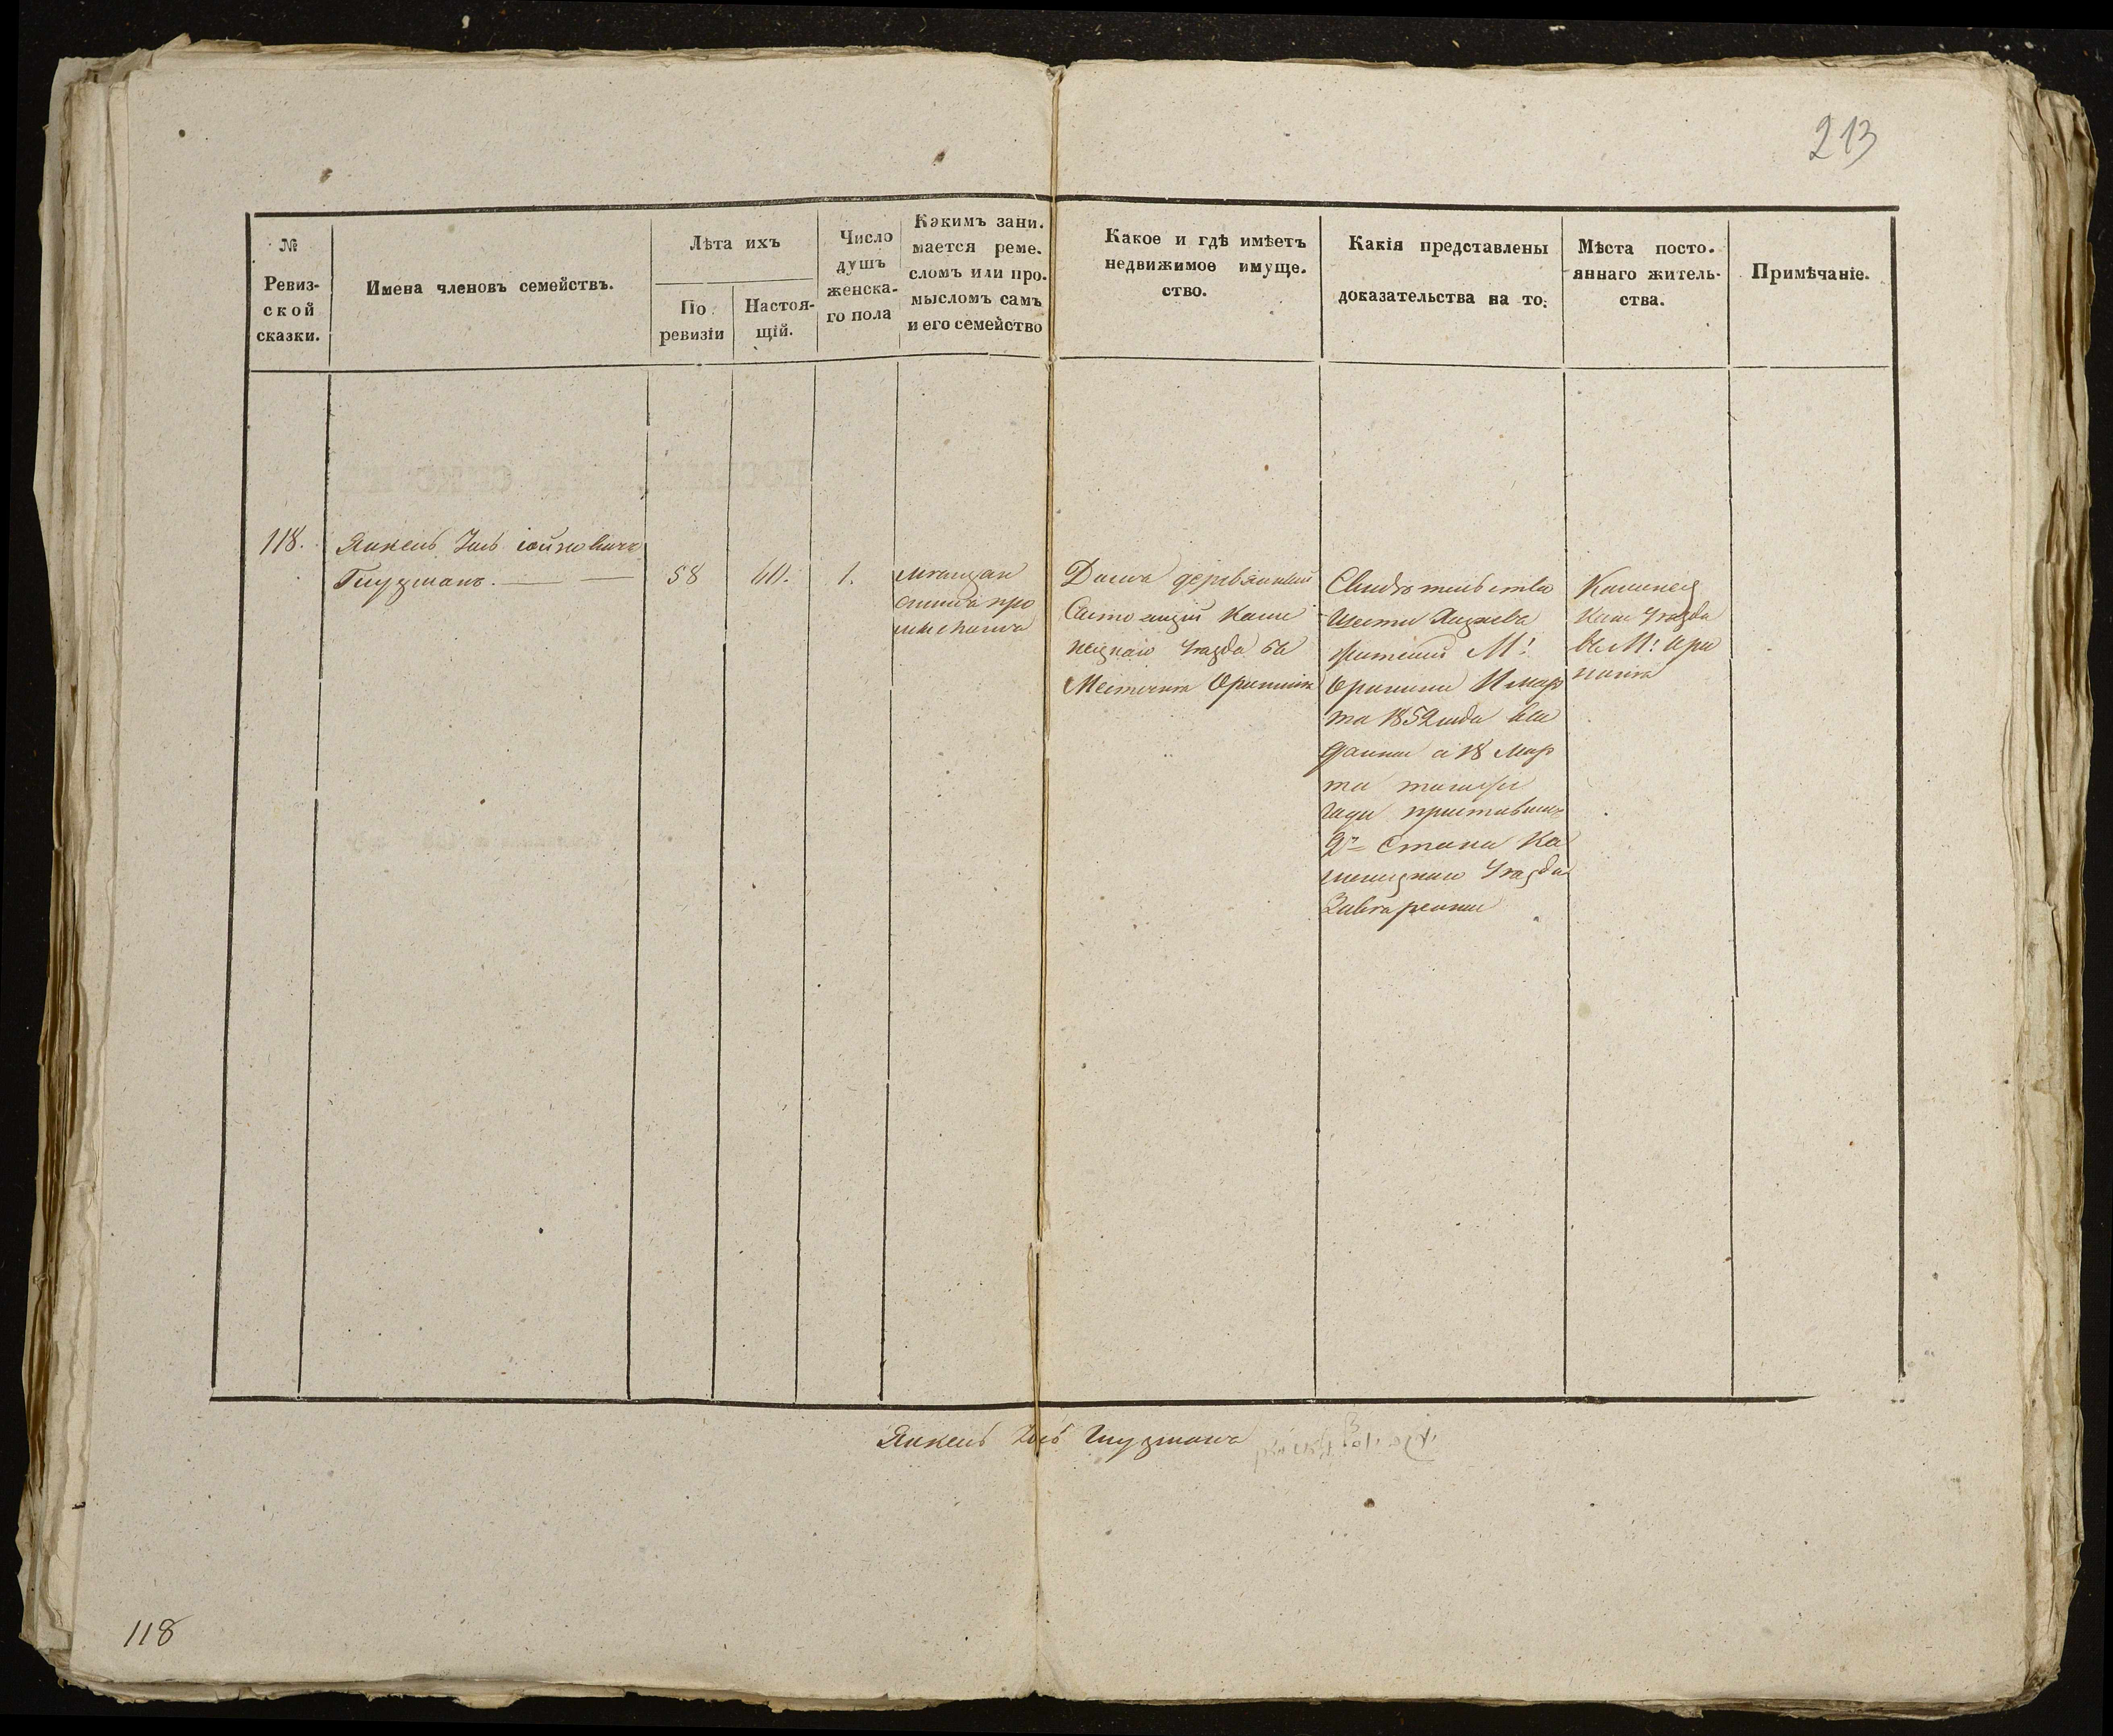 213
№
Ревиз-
ской
сказки.
Имена членовъ семействъ.
Лѣта ихъ
По
ревизіи
Настоя-
щій.
Число
душъ
женска-
го пола
Какимъ зани-
мается реме-
сломъ или про-
мысломъ самъ
и его семейство
Какое и гдѣ имѣетъ
недвижимое имуще-
ство.
Какія представлены
доказательства на то.
Мѣста посто-
яннаго житель-
ства.
Примѣчаніе.
118.
Янкель
58
60.
1.
про
мысломъ
Домъ деревянный
Состоящій Каме
нецкаго Уезда въ
Местечке Орынине
Свидетельство
Шести Хозяевъ
жителей М:
Орынина Мар
та 1852 года
данное а 18 Мар
та того же
года приставомъ
2го Стана Ка
менецкаго Уезда
Каменец
каго Уезда
въ М: Оры
нине
Янкель
118